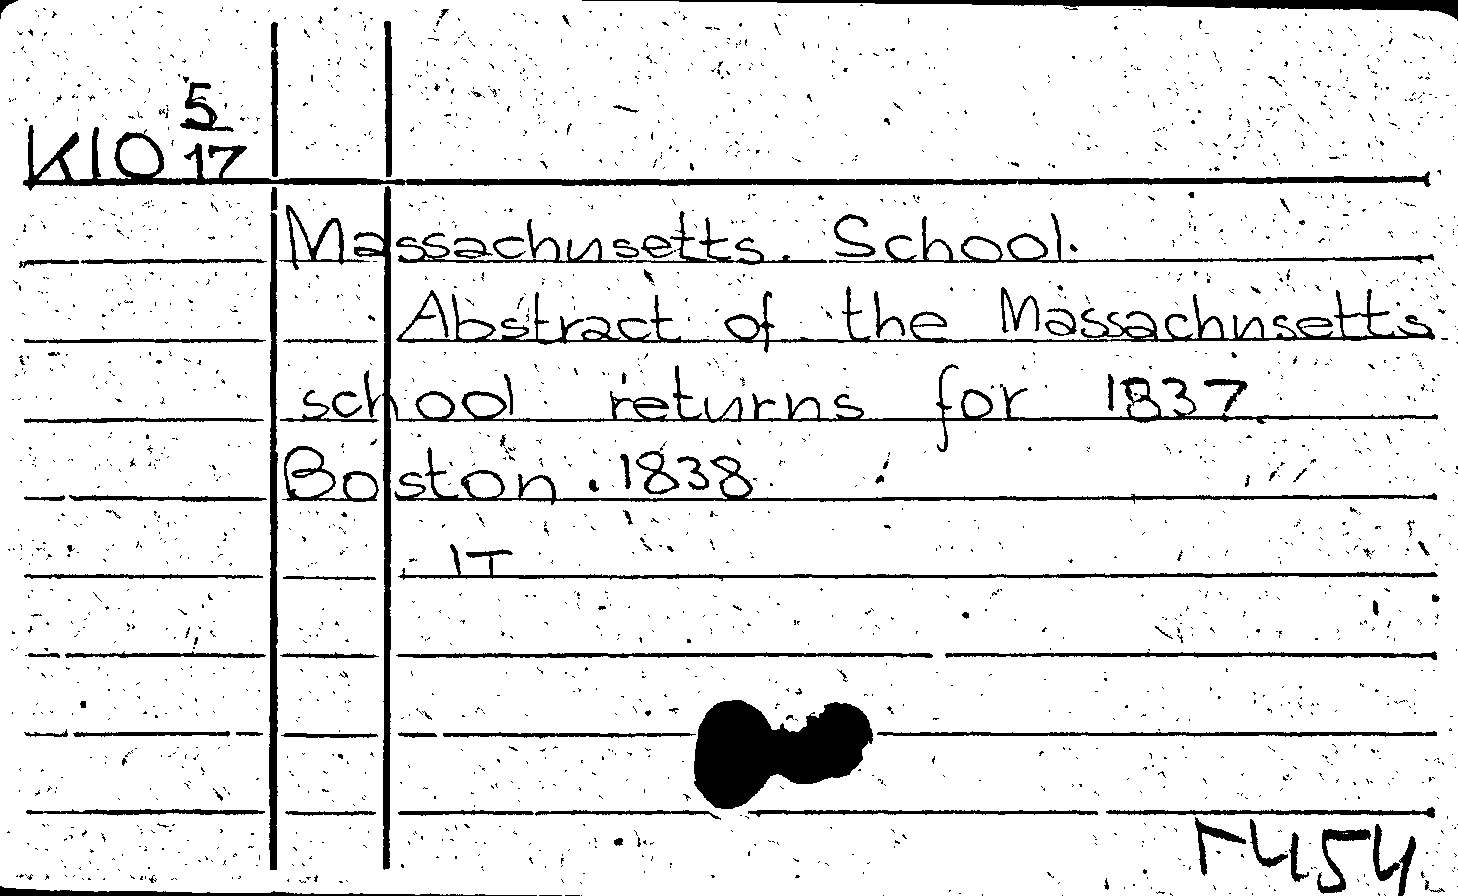 K10 5/17
Massachusetts. School.
Abstract of the Massachusetts
school returns for 1837.
Boston. 1838